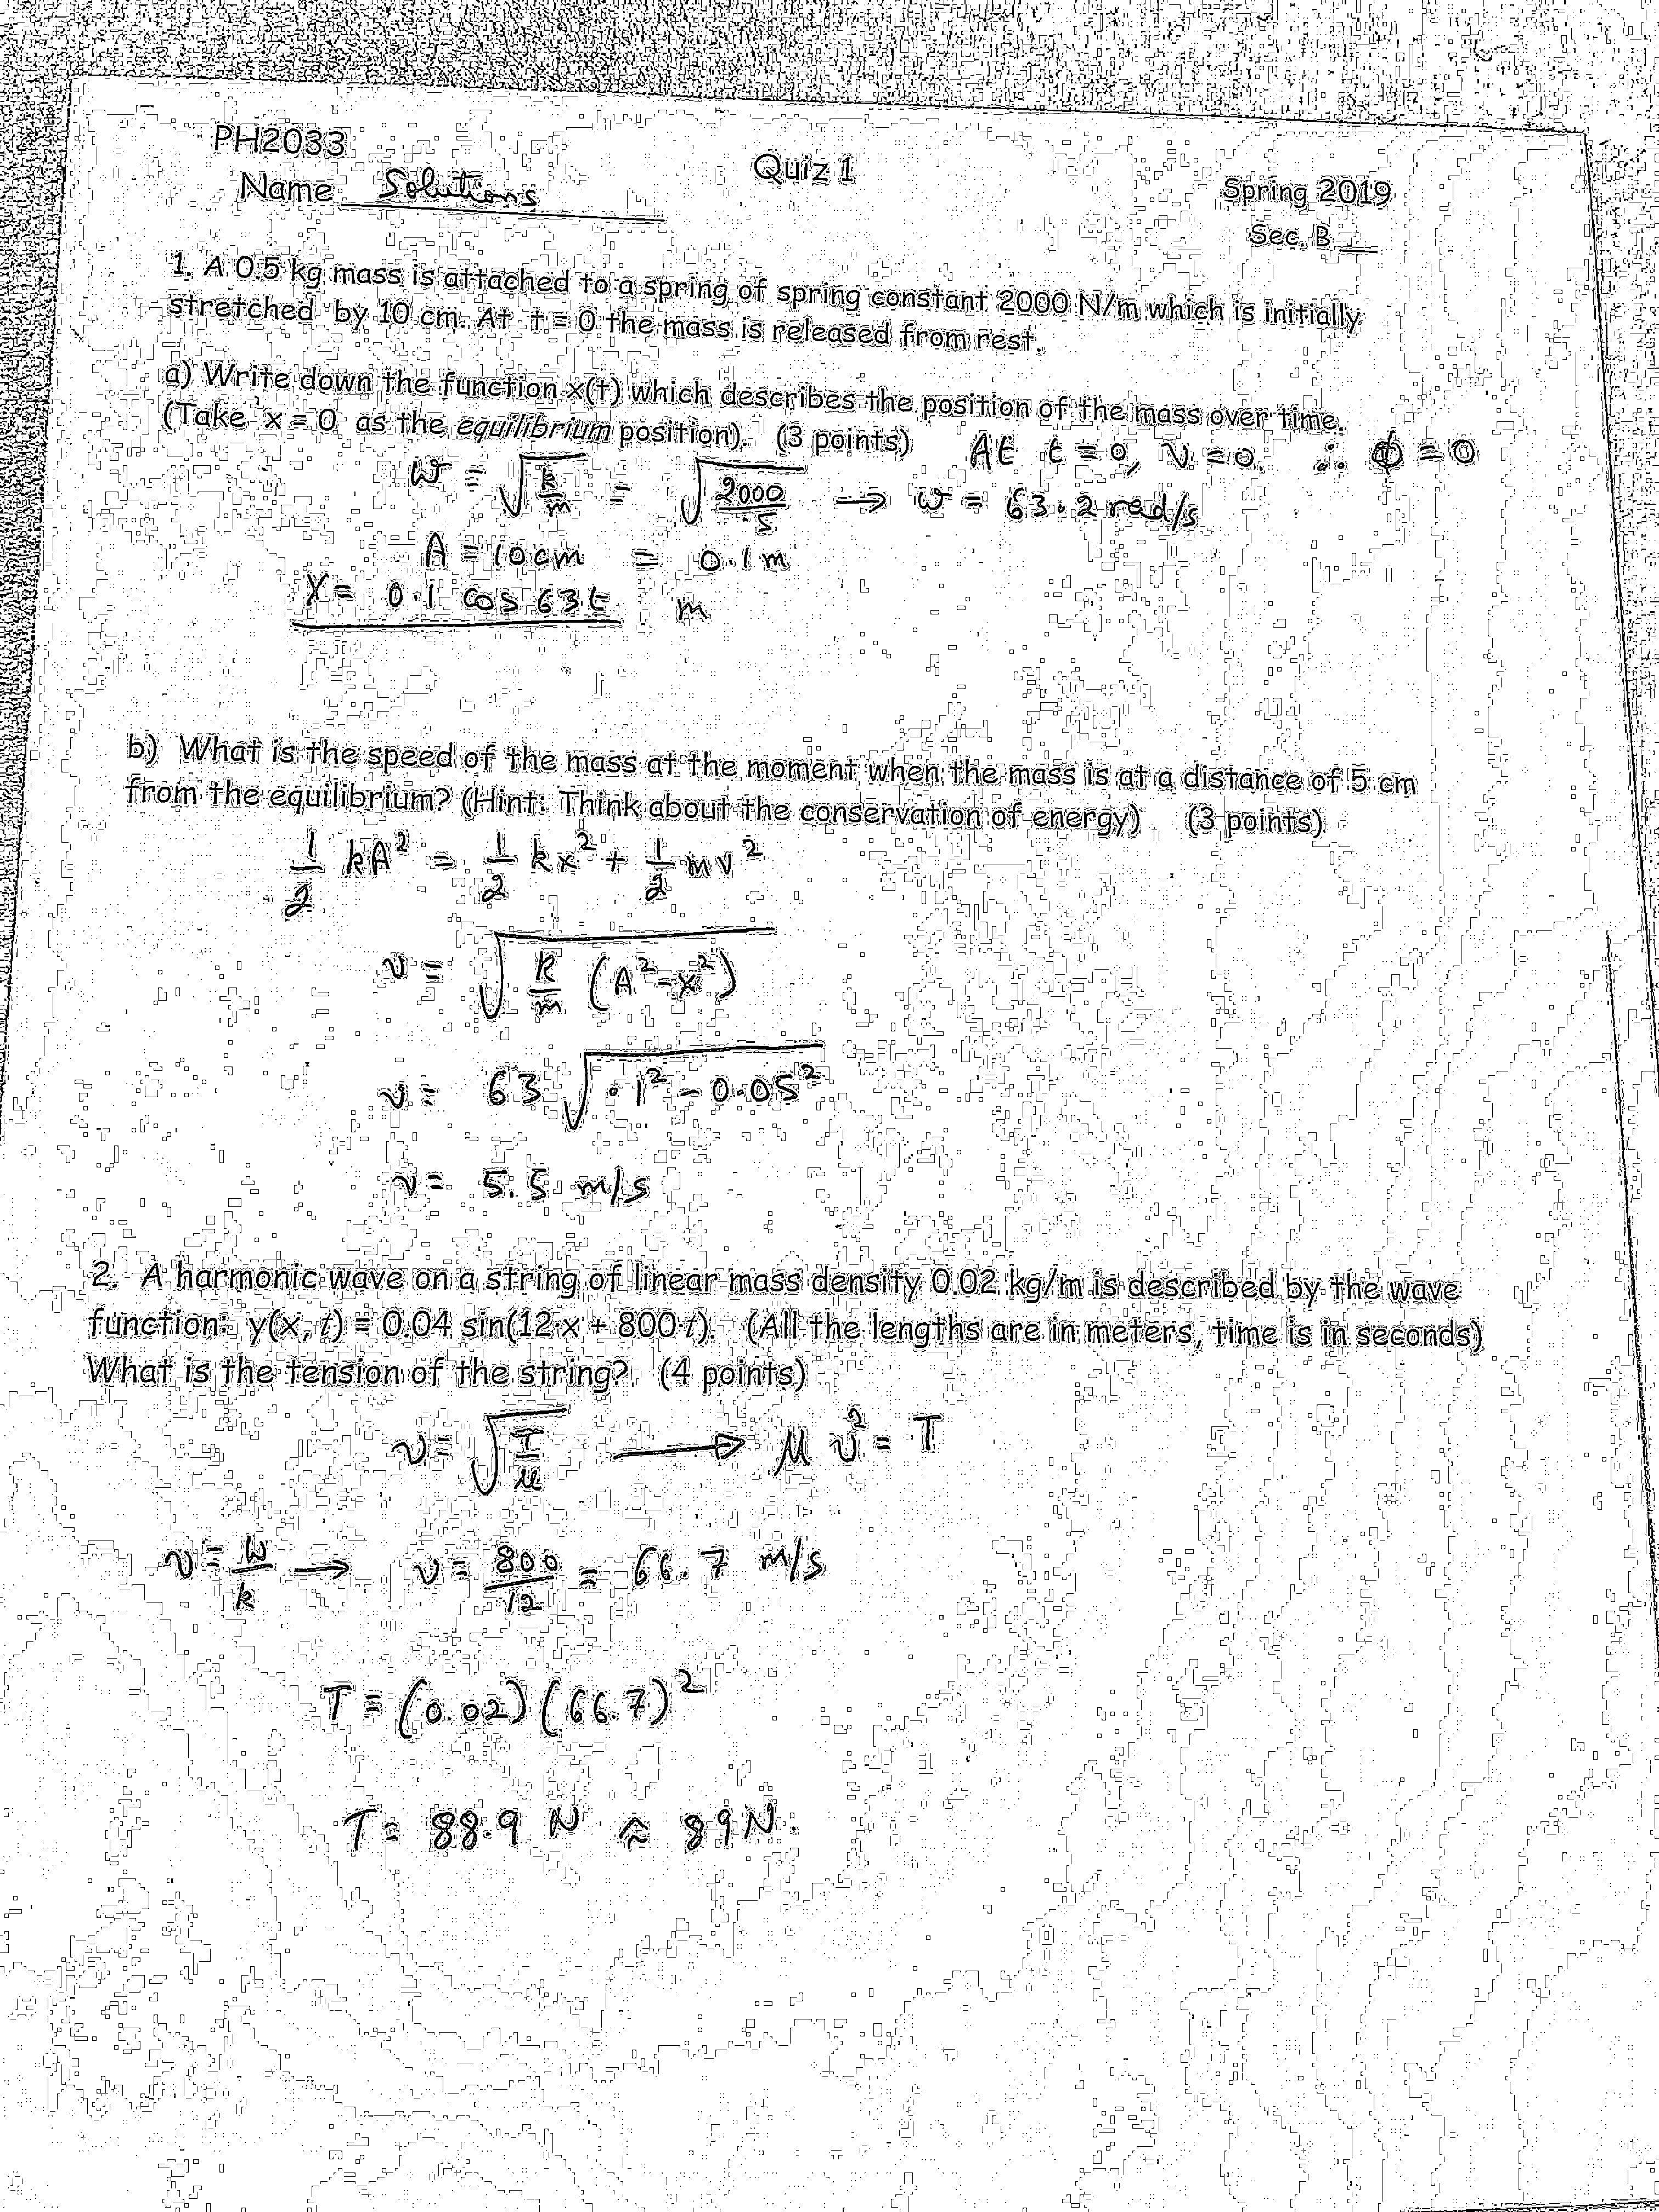 PH2033
Quiz 1
Spring 2019
Name Solutions
Sec. B
1. A 0.5 kg mass is attached to a spring of spring constant 2000 N/m which is initially
stretched by 10 cm. At t = 0 the mass is released from rest.
a) Write down the function x(t) which describes the position of the mass over time.
(Take x = 0 as the equilibrium position). (3 points) At t = 0, v = 0. ∴ ϕ = 0
ω = √(k/m) = √(2000/.5) → ω = 63.2 rad/s
A = 10 cm = 0.1 m
X = 0.1 cos 63t m
b) What is the speed of the mass at the moment when the mass is at a distance of 5 cm
from the equilibrium? (Hint: Think about the conservation of energy) (3 points)
1/2 kA² = 1/2 kx² + 1/2 mv²
v = √(k/m (A² - x²))
v = 63 √(.1² - 0.05²)
v = 5.5 m/s
2. A harmonic wave on a string of linear mass density 0.02 kg/m is described by the wave
function: y(x, t) = 0.04 sin(12·x + 800·t). (All the lengths are in meters, time is in seconds)
What is the tension of the string? (4 points)
v = √(T/μ) → μ v² = T
v = ω/k → v = 800/12 = 66.7 m/s
T = (0.02)(66.7)²
T = 88.9 N ≈ 89 N.